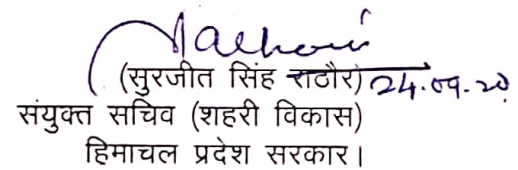 (सुरजीत सिंह राठौर) 24.09.20
संयुक्त सचिव (शहरी विकास)
हिमाचल प्रदेश सरकार।